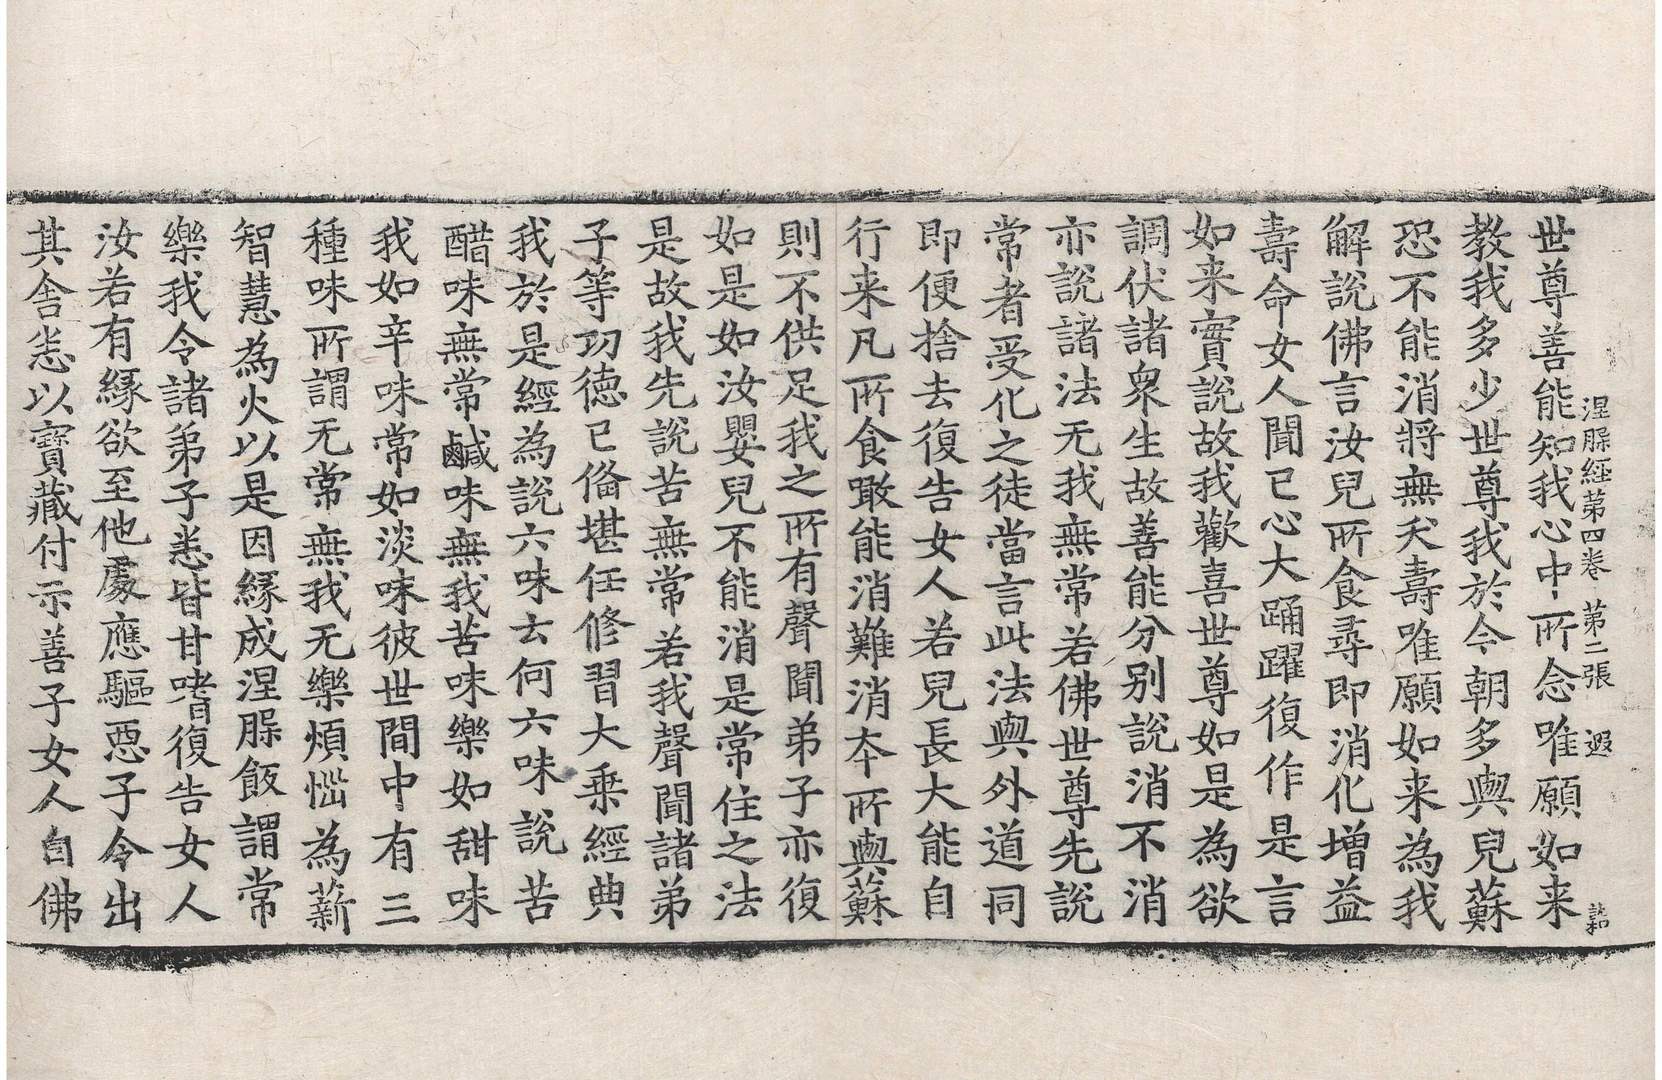 涅槃經第四卷 第二張 遐 
世尊善能知我心中所念唯願如来
教我多少世尊我於今朝多與兒蘇
恐不能消將無夭壽唯願如来為我
解說佛言汝兒所食尋即消化增益
壽命女人聞已心大踊躍復作是言
如来實說故我歡喜世尊如是為欲
調伏諸衆生故善能分别說消不消
亦說諸法无我無常若佛世尊先說
常者受化之徒當言此法與外道同
即便捨去復告女人若兒長大能自
行来凡所食噉能消難消本所與蘇
則不供足我之所有聲聞弟子亦復
如是如汝嬰兒不能消是常住之法
是故我先說苦無常若我聲聞諸弟
子等功德已俻堪任修習大乗經典
我於是經為說六味云何六味說苦
醋味無常鹹味無我苦味樂如甜味
我如辛味常如淡味彼世間中有三
種味所謂无常無我无樂煩惱為薪
智慧為火以是因縁成涅槃飯謂常
樂我令諸弟子悉皆甘嗜復告女人
汝若有縁欲至他處應驅惡子令出
其舎悉以寶藏付示善子女人白佛